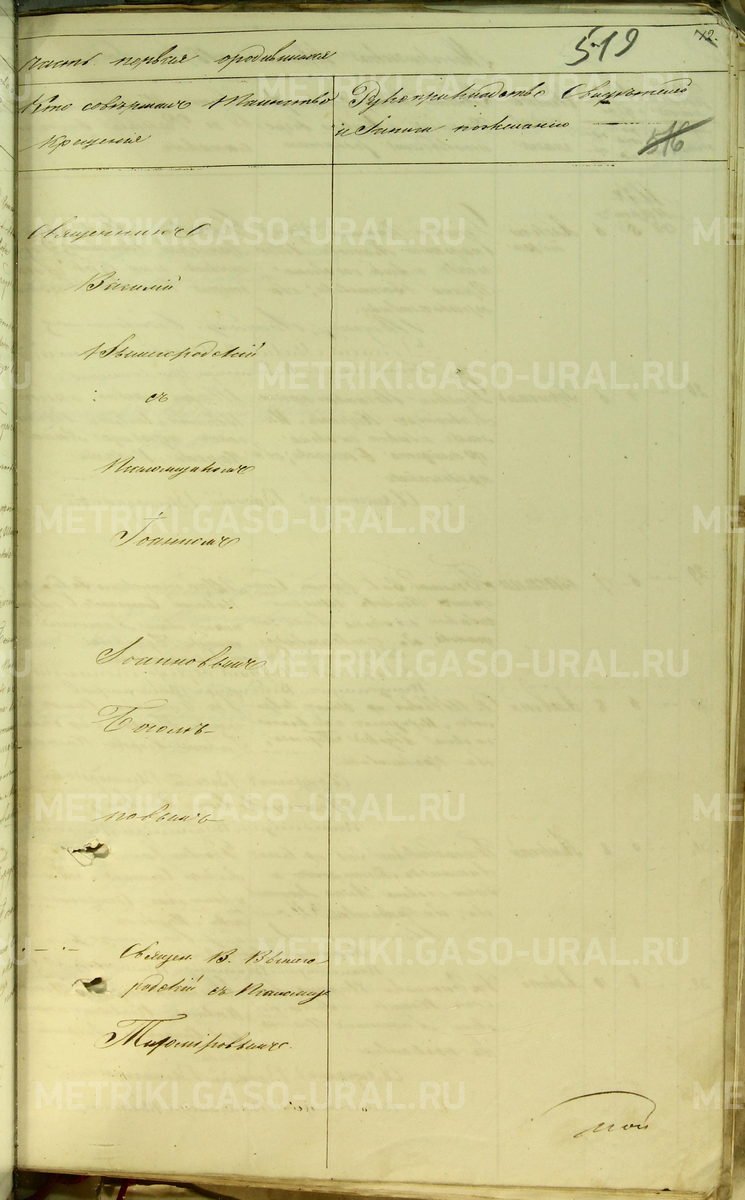 72.
519
часть первая о родившихся
Кто совершалъ Таинство
крещенія
Рукоприкладство Свидѣтелей
и Записи по желанію
516
Священникъ
Василій
Вышегородскій
съ
Псаломщикомъ
Іоанномъ
Іоанновымъ
Боголѣ-
повымъ
Священ. В. Вышего
родскій съ Псаломщ.
Тихоміровымъ.
METRIKI.GASO-URAL.RU